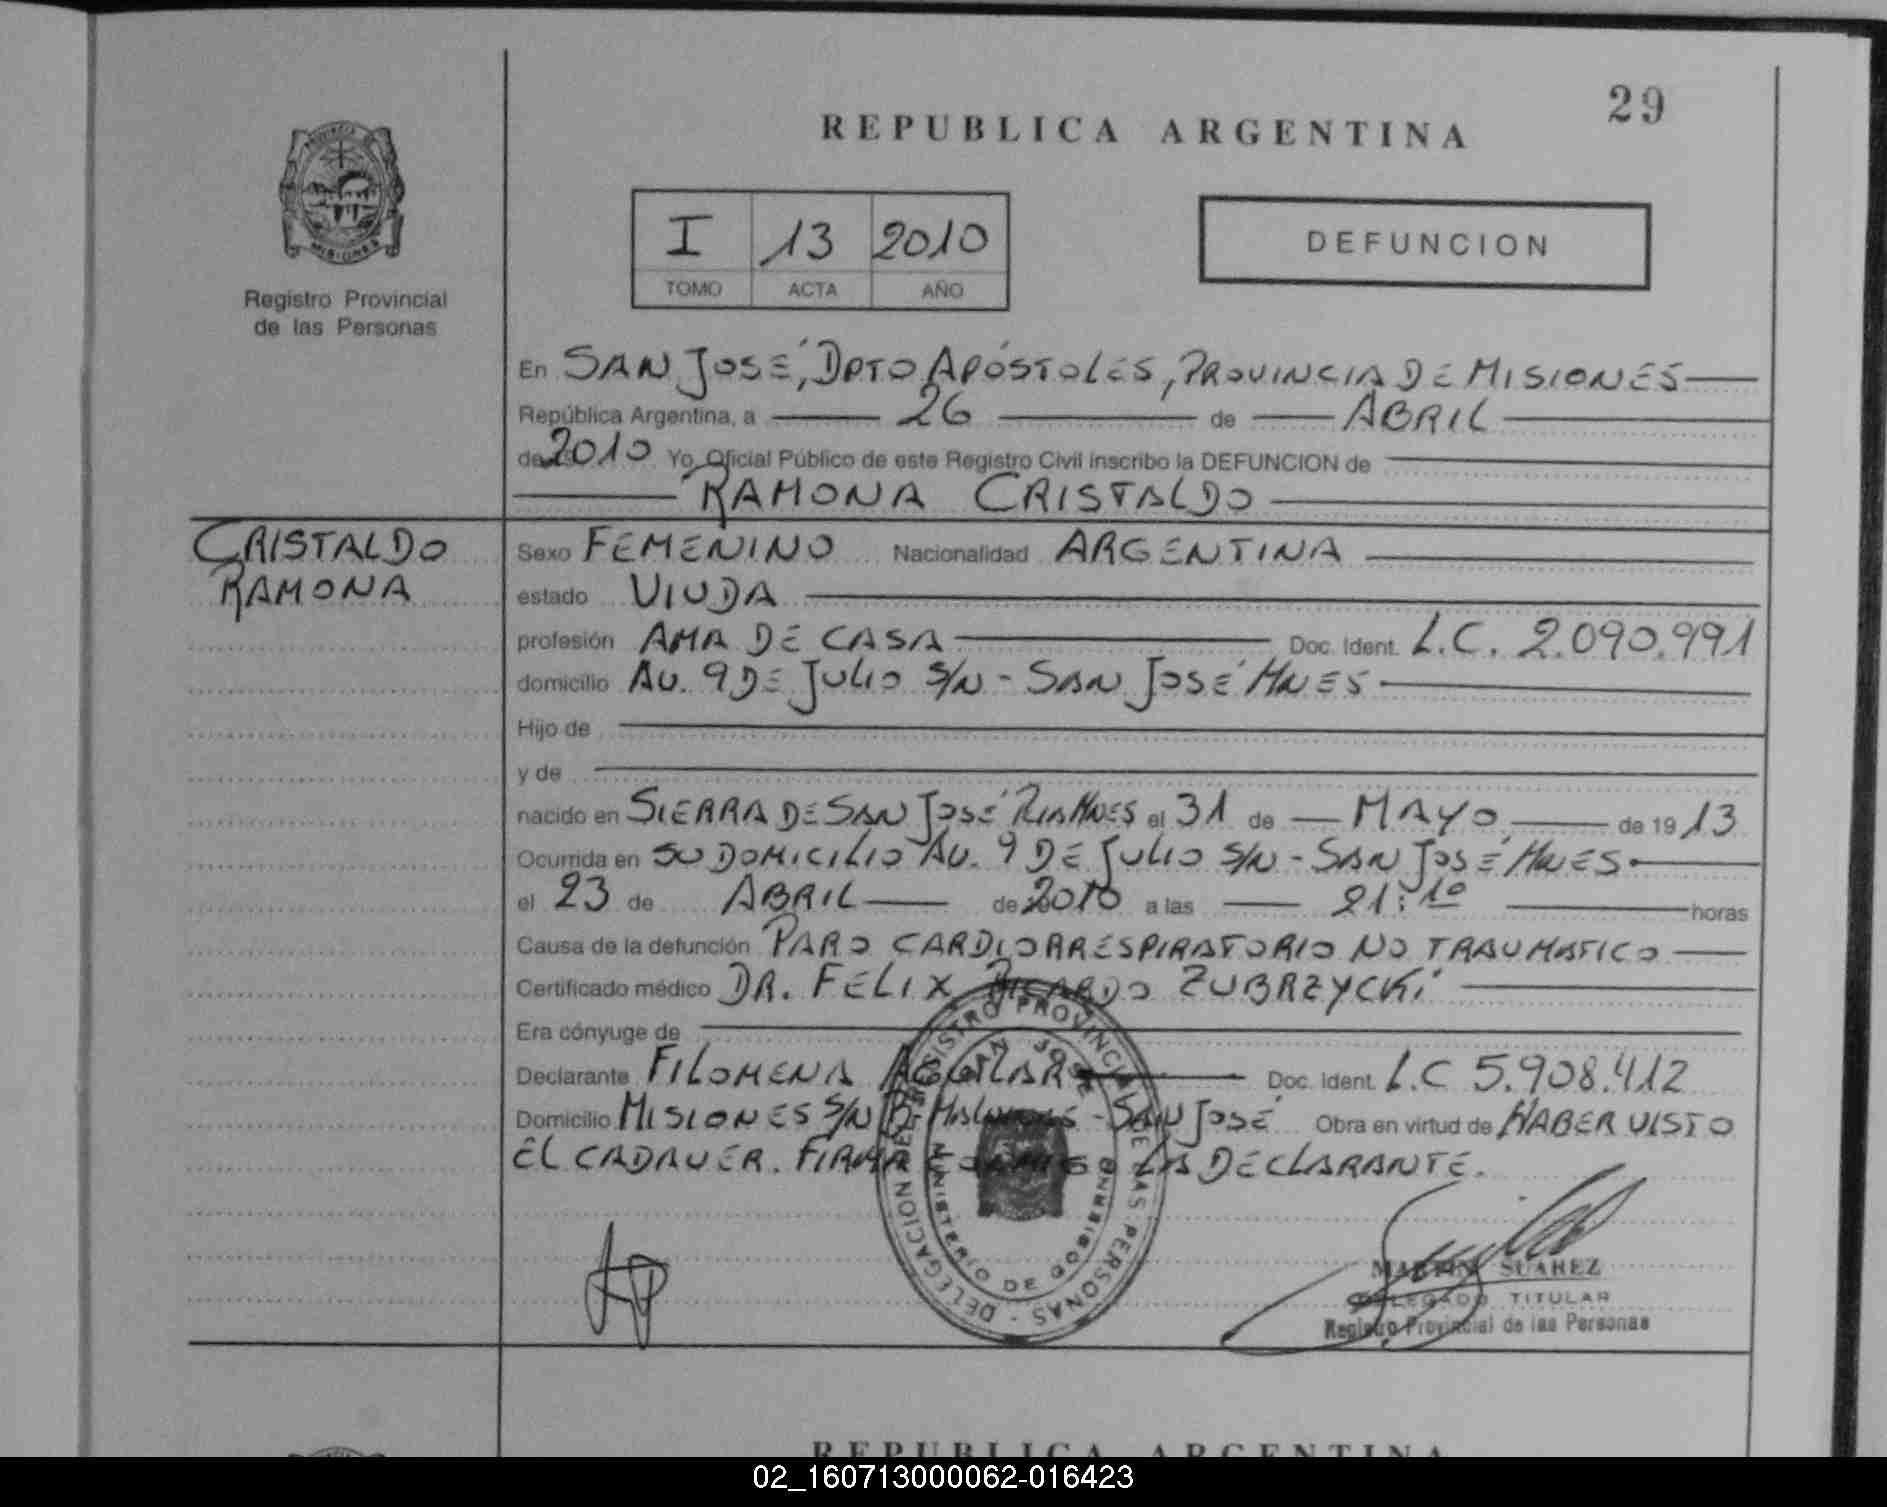 29
REPUBLICA ARGENTINA
PROVINCIA DE MISIONES
Registro Provincial
de las Personas
I 13 2010
TOMO ACTA AÑO
DEFUNCION
En SAN JOSÉ, DPTO APÓSTOLES, PROVINCIA DE MISIONES
República Argentina, a 26 de ABRIL
de 2010 Yo, Oficial Público de este Registro Civil inscribo la DEFUNCION de
RAMONA CRISTALDO
CRISTALDO
RAMONA
Sexo FEMENINO Nacionalidad ARGENTINA
estado VIUDA
profesión AMA DE CASA Doc. Ident. L.C. 2.090.991
domicilio AV. 9 DE JULIO S/N - SAN JOSÉ MNES
Hijo de
y de
nacido en SIERRA DE SAN JOSÉ MNES el 31 de MAYO de 19 13
Ocurrida en SU DOMICILIO AV. 9 DE JULIO S/N - SAN JOSÉ MNES.
el 23 de ABRIL de 2010 a las 21:10 horas
Causa de la defunción PARO CARDIORRESPIRATORIO NO TRAUMATICO
Certificado médico DR. FÉLIX RICARDO ZUBRZYCKI
Era cónyuge de
Declarante FILOMENA AGUILAR Doc. Ident. L.C 5.908.412
Domicilio MISIONES S/N - SAN JOSÉ Obra en virtud de HABER VISTO
EL CADAVER. FIRMA LA DECLARANTE.
DELEGACION DE REGISTRO PROVINCIAL DE LAS PERSONAS
SAN JOSE
MINISTERIO DE GOBIERNO
MARTIN SUAREZ
DELEGADO TITULAR
Registro Provincial de las Personas
REPUBLICA ARGENTINA
02_160713000062-016423